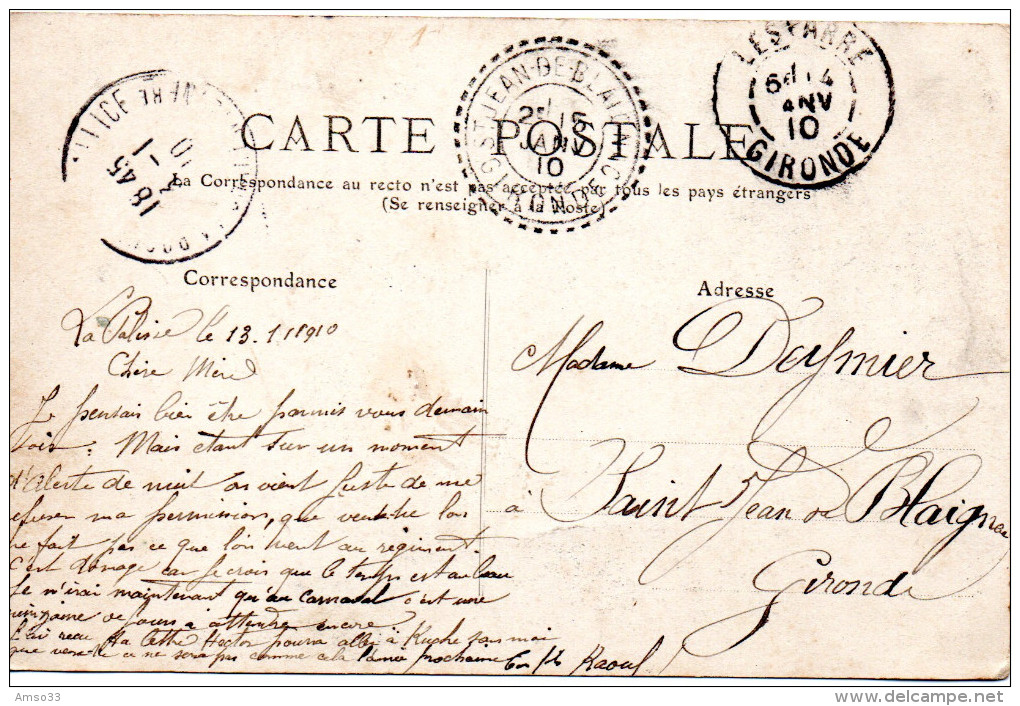 LESPARRE
6E 14
JANV
10
GIRONDE
ST JEAN-DE-BLAIGNAC
2E 15
JANV
10
GIRONDE
18 45
CARTE POSTALE
La Correspondance au recto n'est pas acceptée par tous les pays étrangers
(Se renseigner à la Poste)
Correspondance
Adresse
La Palisse le 13.1.1910
Chère Mère
Je pensais bien être parmis vous demain
soir. Mais etant sur un moment
d'Alerte de nuit on vient juste de me
refuser ma permission, que veux-tu l'on
ne fait pas ce que l'on veut au regiment.
C'est domage car Je crois que le temps est au beau
Je n'irai maintenant qu'au carnaval c'est une
quinzaine de jours a attendre encore.
J'ai recu ta lettre Hector pourra aller à sans moi
que veux-tu ce ne sera pas comme cela l'année prochaine Raoul
Madame Daymier
à Saint Jean de Blaignac
Gironde
Amso33
delcampe.net